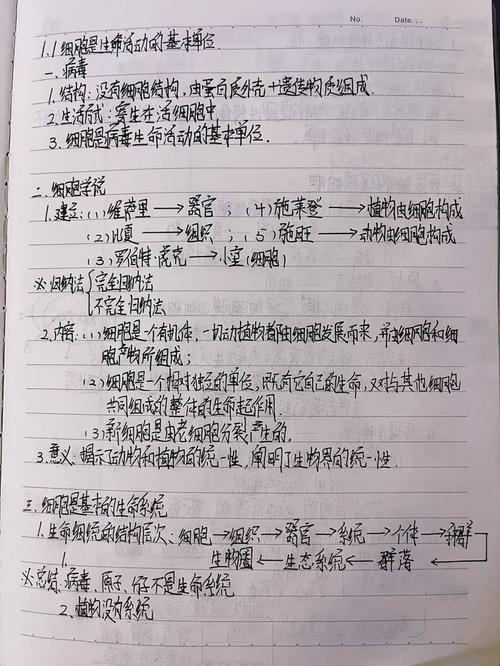 No. Date...
1.1 细胞是生命活动的基本单位.
一、病毒
1. 结构: 没有细胞结构, 由蛋白质外壳+遗传物质组成.
2. 生活方式: 寄生在活细胞中
3. 细胞是病毒生命活动的基本单位.
二. 细胞学说
1. 建立: (1) 维萨里 → 器官 ; (4) 施莱登 → 植物由细胞构成
(2) 比夏 → 组织 ; (5) 施旺 → 动物由细胞构成
(3) 罗伯特·虎克 → 小室 (细胞)
※ 归纳法 { 完全归纳法
不完全归纳法
2. 内容: (1) 细胞是一个有机体, 一切动植物都由细胞发展而来, 并由细胞和细
胞产物所组成;
(2) 细胞是一个相对独立的单位, 既有它自己的生命, 又对与其他细胞
共同组成的整体的生命起作用.
(3) 新细胞是由老细胞分裂产生的.
3. 意义: 揭示了动物和植物的统一性, 阐明了生物界的统一性.
三. 细胞是基本的生命系统
1. 生命系统的结构层次、细胞 → 组织 → 器官 → 系统 → 个体 → 种群
生物圈 ← 生态系统 ← 群落
※总结: 1. 病毒、原子、分子不是生命系统
2. 植物没有系统